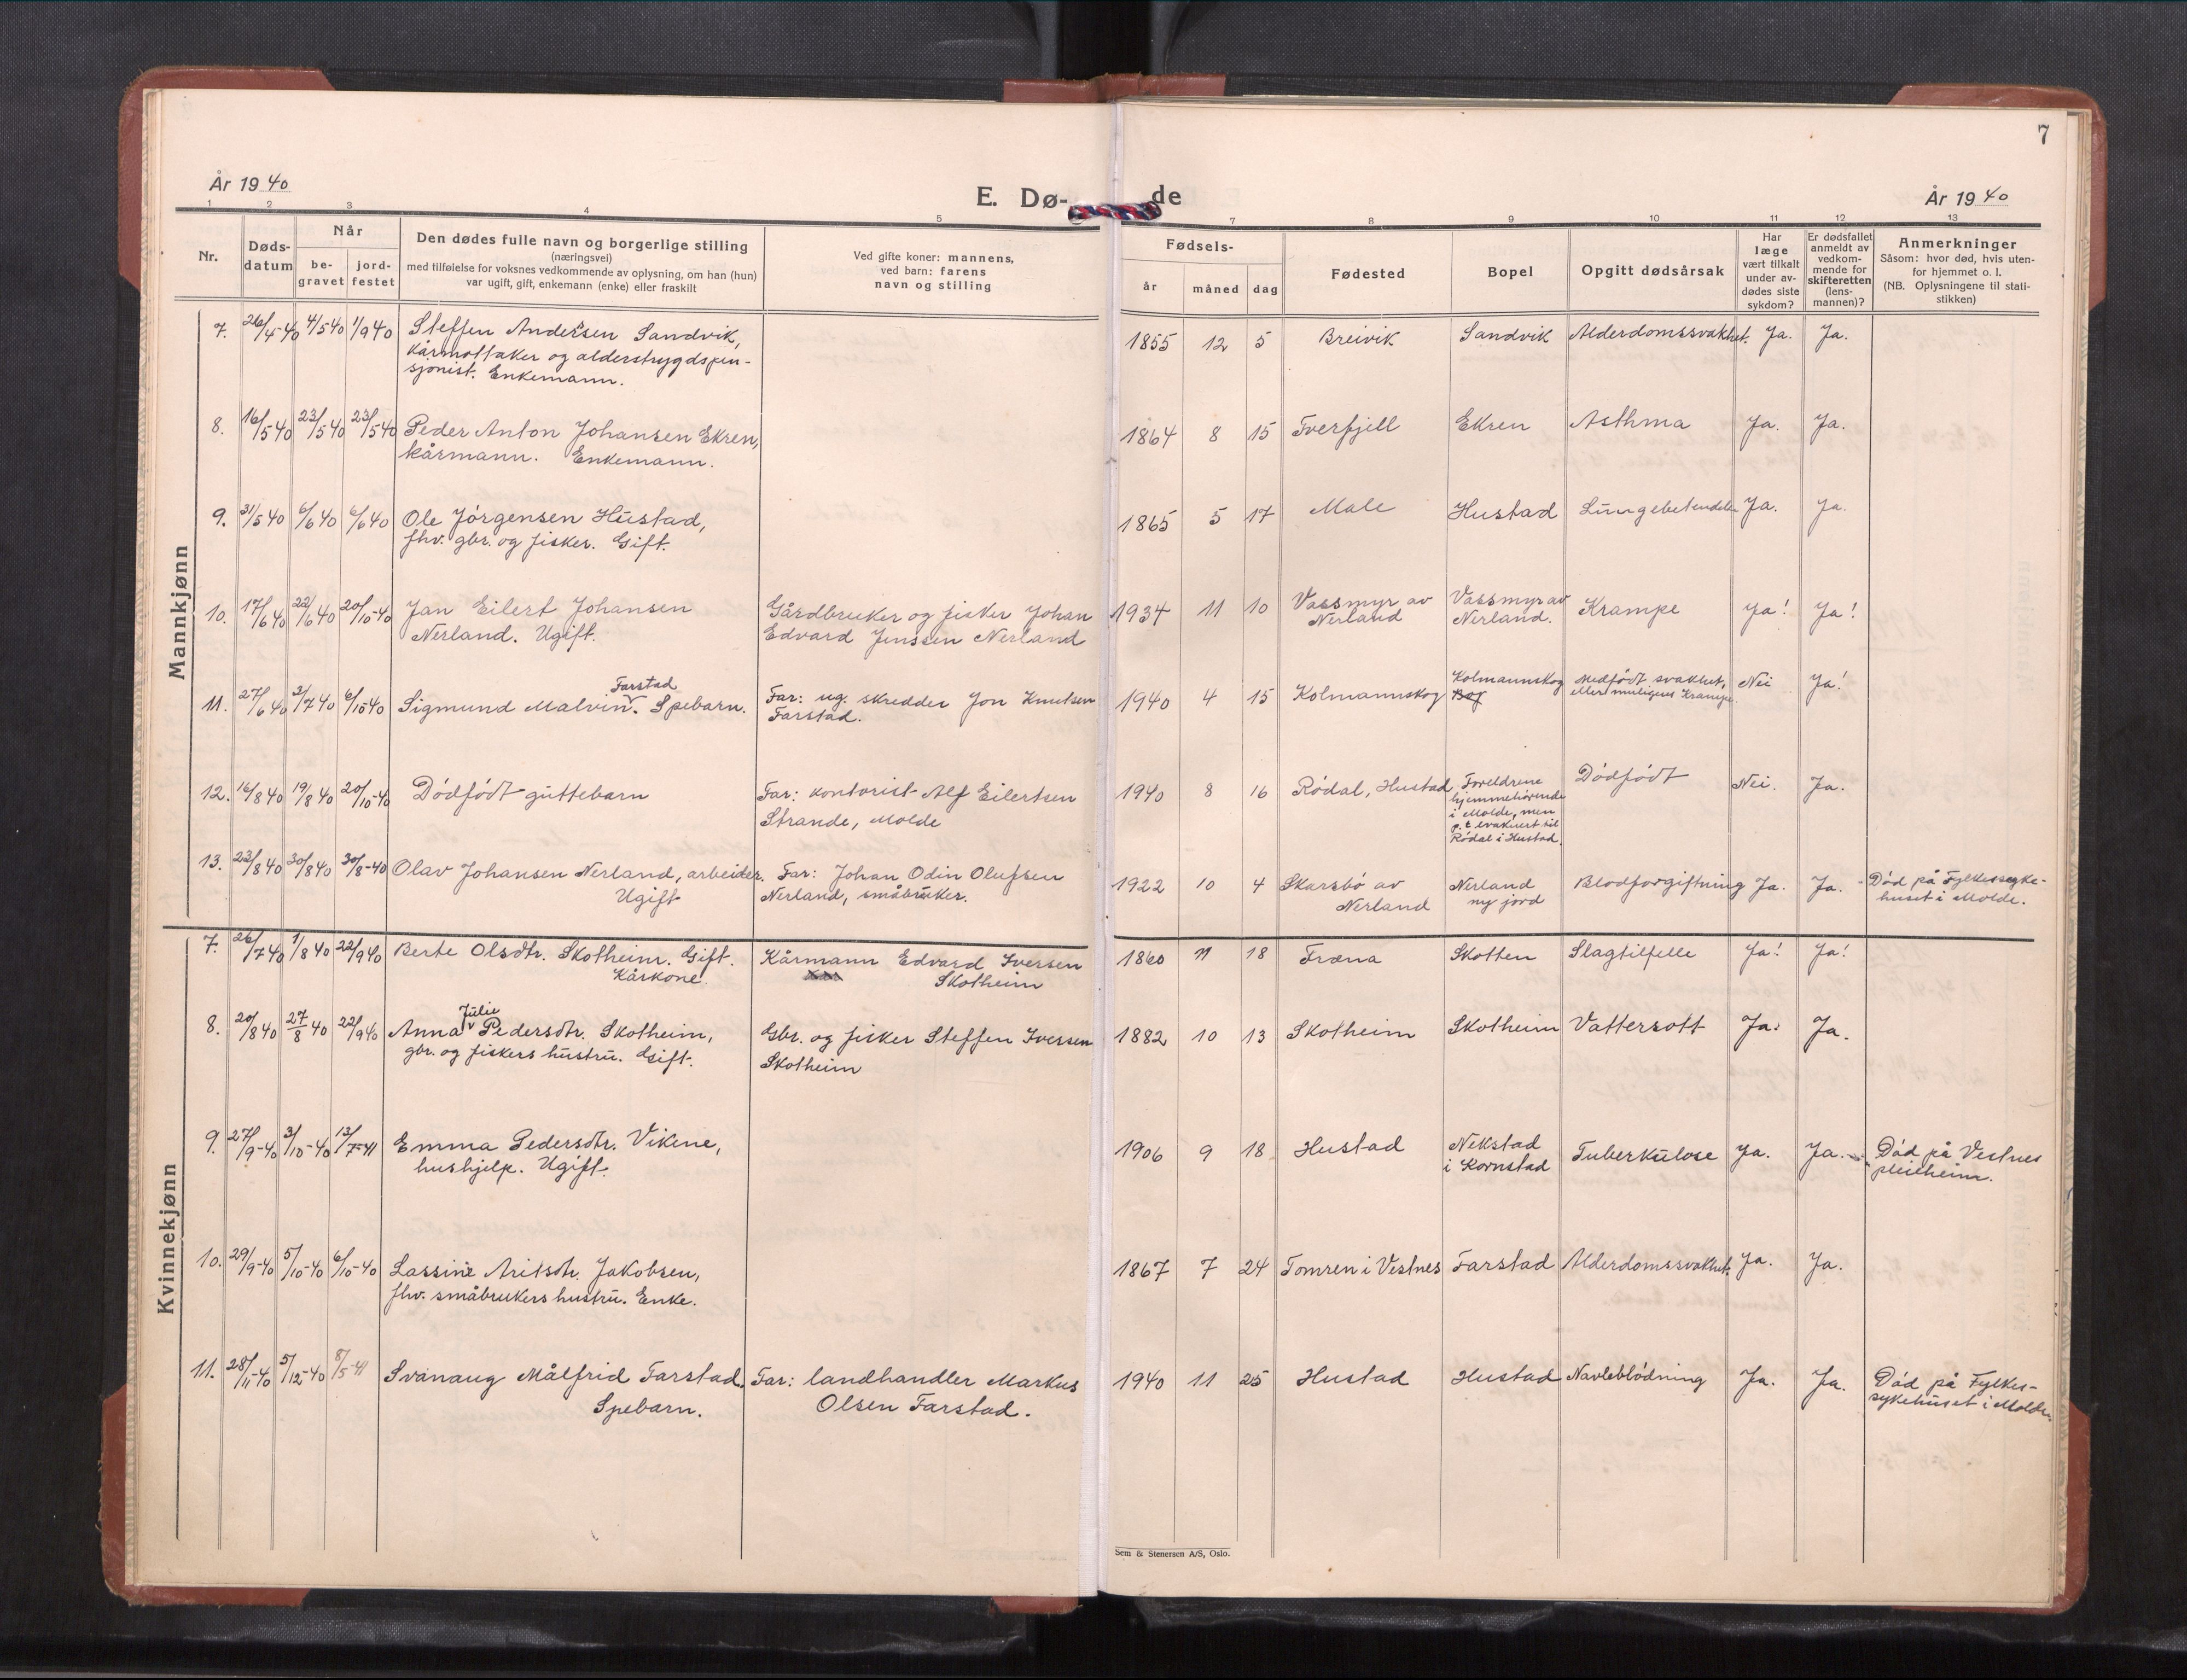 7
År 1940
E. Dø-
de
År 1940
1 2 3 4 5 7 8 9 10 11 12 13
Nr.
Døds-
datum
Når
be-
gravet
jord-
festet
Den dødes fulle navn og borgerlige stilling
(næringsvei)
med tilføielse for voksnes vedkommende av oplysning, om han (hun)
var ugift, gift, enkemann (enke) eller fraskilt
Ved gifte koner: mannens,
ved barn: farens
navn og stilling
Fødsels-
år måned dag
Fødested
Bopel
Opgitt dødsårsak
Har
læge
vært tilkalt
under av-
dødes siste
sykdom?
Er dødsfallet
anmeldt av
vedkom-
mende for
skifteretten
(lens-
mannen)?
Anmerkninger
Såsom: hvor død, hvis uten-
for hjemmet o. l.
(NB. Oplysningene til stati-
stikken)
Mannkjønn
7. 26/4 40 4/5 40 1/9 40 Steffen Andersen Sandvik, 1855 12 5 Breivik Sandvik Alderdomssvakhet. Ja. Ja.
kårmottaker og alderstrygdspen-
sjonist. Enkemann.
8. 16/5 40 23/5 40 23/5 40 Peder Anton Johansen Ekren, 1864 8 15 Tverfjell Ekren Asthma Ja. Ja.
kårmann. Enkemann.
9. 31/5 40 6/6 40 6/6 40 Ole Jørgensen Hustad, 1865 5 17 Male Hustad Lungebetendelse Ja. Ja.
fhv. gbr. og fisker. Gift.
10. 17/6 40 22/6 40 20/10-40 Jan Eilert Johansen Gårdbruker og fisker Johan 1934 11 10 Vassmyr av Vassmyr av Krampe Ja! Ja!
Nerland. Ugift. Edvard Jenssen Nerland Nerland Nerland.
Farstad
11. 27/6 40 3/7 40 6/10 40 Sigmund Malvin. Spebarn. Far: ug. skredder Jon Knutsen 1940 4 15 Kolmannskog Kolmannskog Medfødt svakhet, Nei Ja!
Farstad. eller muligens Krampe.
12. 16/8 40 19/8 40 20/10-40 Dødfødt guttebarn Far: kontorist Alf Eilertsen 1940 8 16 Rødal, Hustad Foreldrene Dødfødt Nei. Ja.
Strande, Molde hjemmehørende
i Molde, men
p.t. evakuert til
Rødal i Hustad.
13. 23/8 40 30/8 40 30/8-40 Olav Johansen Nerland, arbeider. Far: Johan Odin Olufsen 1922 10 4 Skarsbø av Nerland Blodforgiftning Ja. Ja. Død på Fylkessyke-
Ugift Nerland, småbruker. Nerland ny jord huset i Molde.
Kvinnekjønn
7. 26/7 40 1/8 40 22/9 40 Berte Olsdtr. Skotheim. Gift. Kårmann Edvard Iversen 1860 11 18 Fræna Skotten Slagtilfelle Ja! Ja!
Kårkone. Skotheim
Julie
8. 20/8 40 27/8 40 22/9 40 Anna Pedersdtr. Skotheim, Gbr. og fisker Steffen Iversen 1882 10 13 Skotheim Skotheim Vattersott Ja. Ja.
gbr. og fiskers hustru. Gift. Skotheim
9. 27/9-40 3/10-40 13/7-41 Emma Pedersdtr. Vikene, 1906 9 18 Hustad Nekstad Tuberkulose Ja. Ja. Død på Vestnes
hushjelp. Ugift. i Kornstad pleieheim.
10. 29/9-40 5/10-40 6/10-40 Lassine Aritsdtr. Jakobsen, 1867 7 24 Tomren i Vestnes Farstad Alderdomssvakhet. Ja. Ja.
fhv. småbrukers hustru. Enke.
11. 28/11-40 5/12-40 8/5-41 Svanaug Målfrid Farstad. Far: landhandler Markus 1940 11 25 Hustad Hustad Navleblødning Ja. Ja. Død på Fylkes-
Spebarn. Olsen Farstad. sykehuset i Molde.
Sem & Stenersen A/S, Oslo.